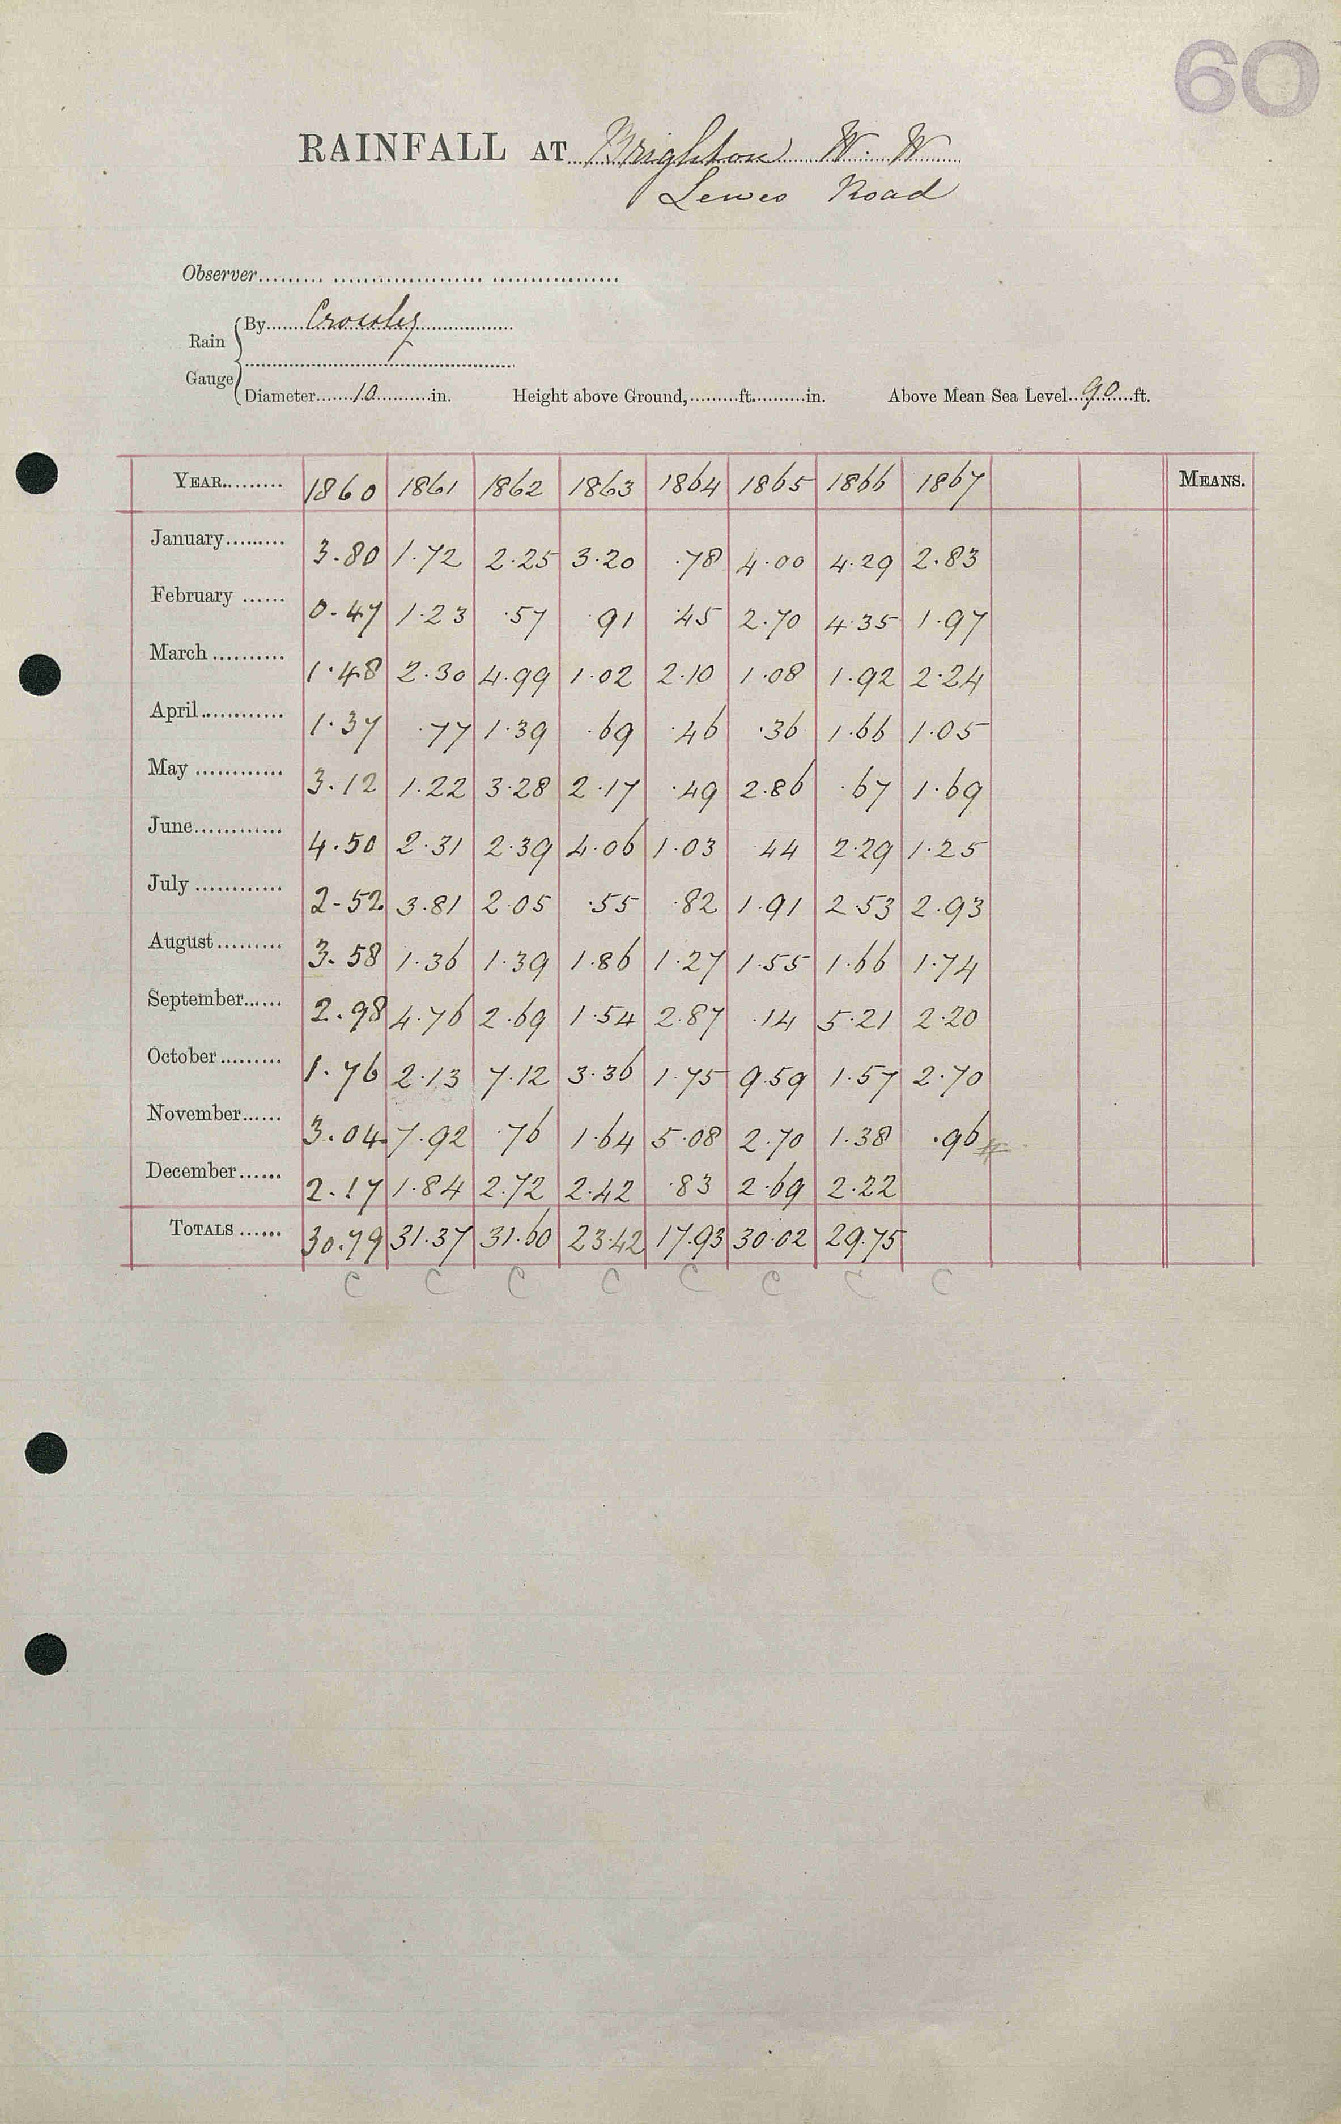 60
RAINFALL AT Brighton W. W
Lewes Road
Observer
Rain Gauge
By Crossley
Diameter 10 in. Height above Ground, ft. in. Above Mean Sea Level 90 ft.
YEAR 1860 1861 1862 1863 1864 1865 1866 1867 MEANS.
January 3.80 1.72 2.25 3.20 .78 4.00 4.29 2.83
February 0.47 1.23 .57 .91 .45 2.70 4.35 1.97
March 1.48 2.30 4.99 1.02 2.10 1.08 1.92 2.24
April 1.37 .77 1.39 .69 .46 .36 1.66 1.05
May 3.12 1.22 3.28 2.17 .49 2.86 .67 1.69
June 4.50 2.31 2.39 4.06 1.03 .44 2.29 1.25
July 2.52 3.81 2.05 .55 .82 1.91 2.53 2.93
August 3.58 1.36 1.39 1.86 1.27 1.55 1.66 1.74
September 2.98 4.76 2.69 1.54 2.87 .14 5.21 2.20
October 1.76 2.13 7.12 3.36 1.75 9.59 1.57 2.70
November 3.04 7.92 .76 1.64 5.08 2.70 1.38 .96
December 2.17 1.84 2.72 2.42 .83 2.69 2.22
TOTALS 30.79 31.37 31.60 23.42 17.93 30.02 29.75
C C C C C C C C